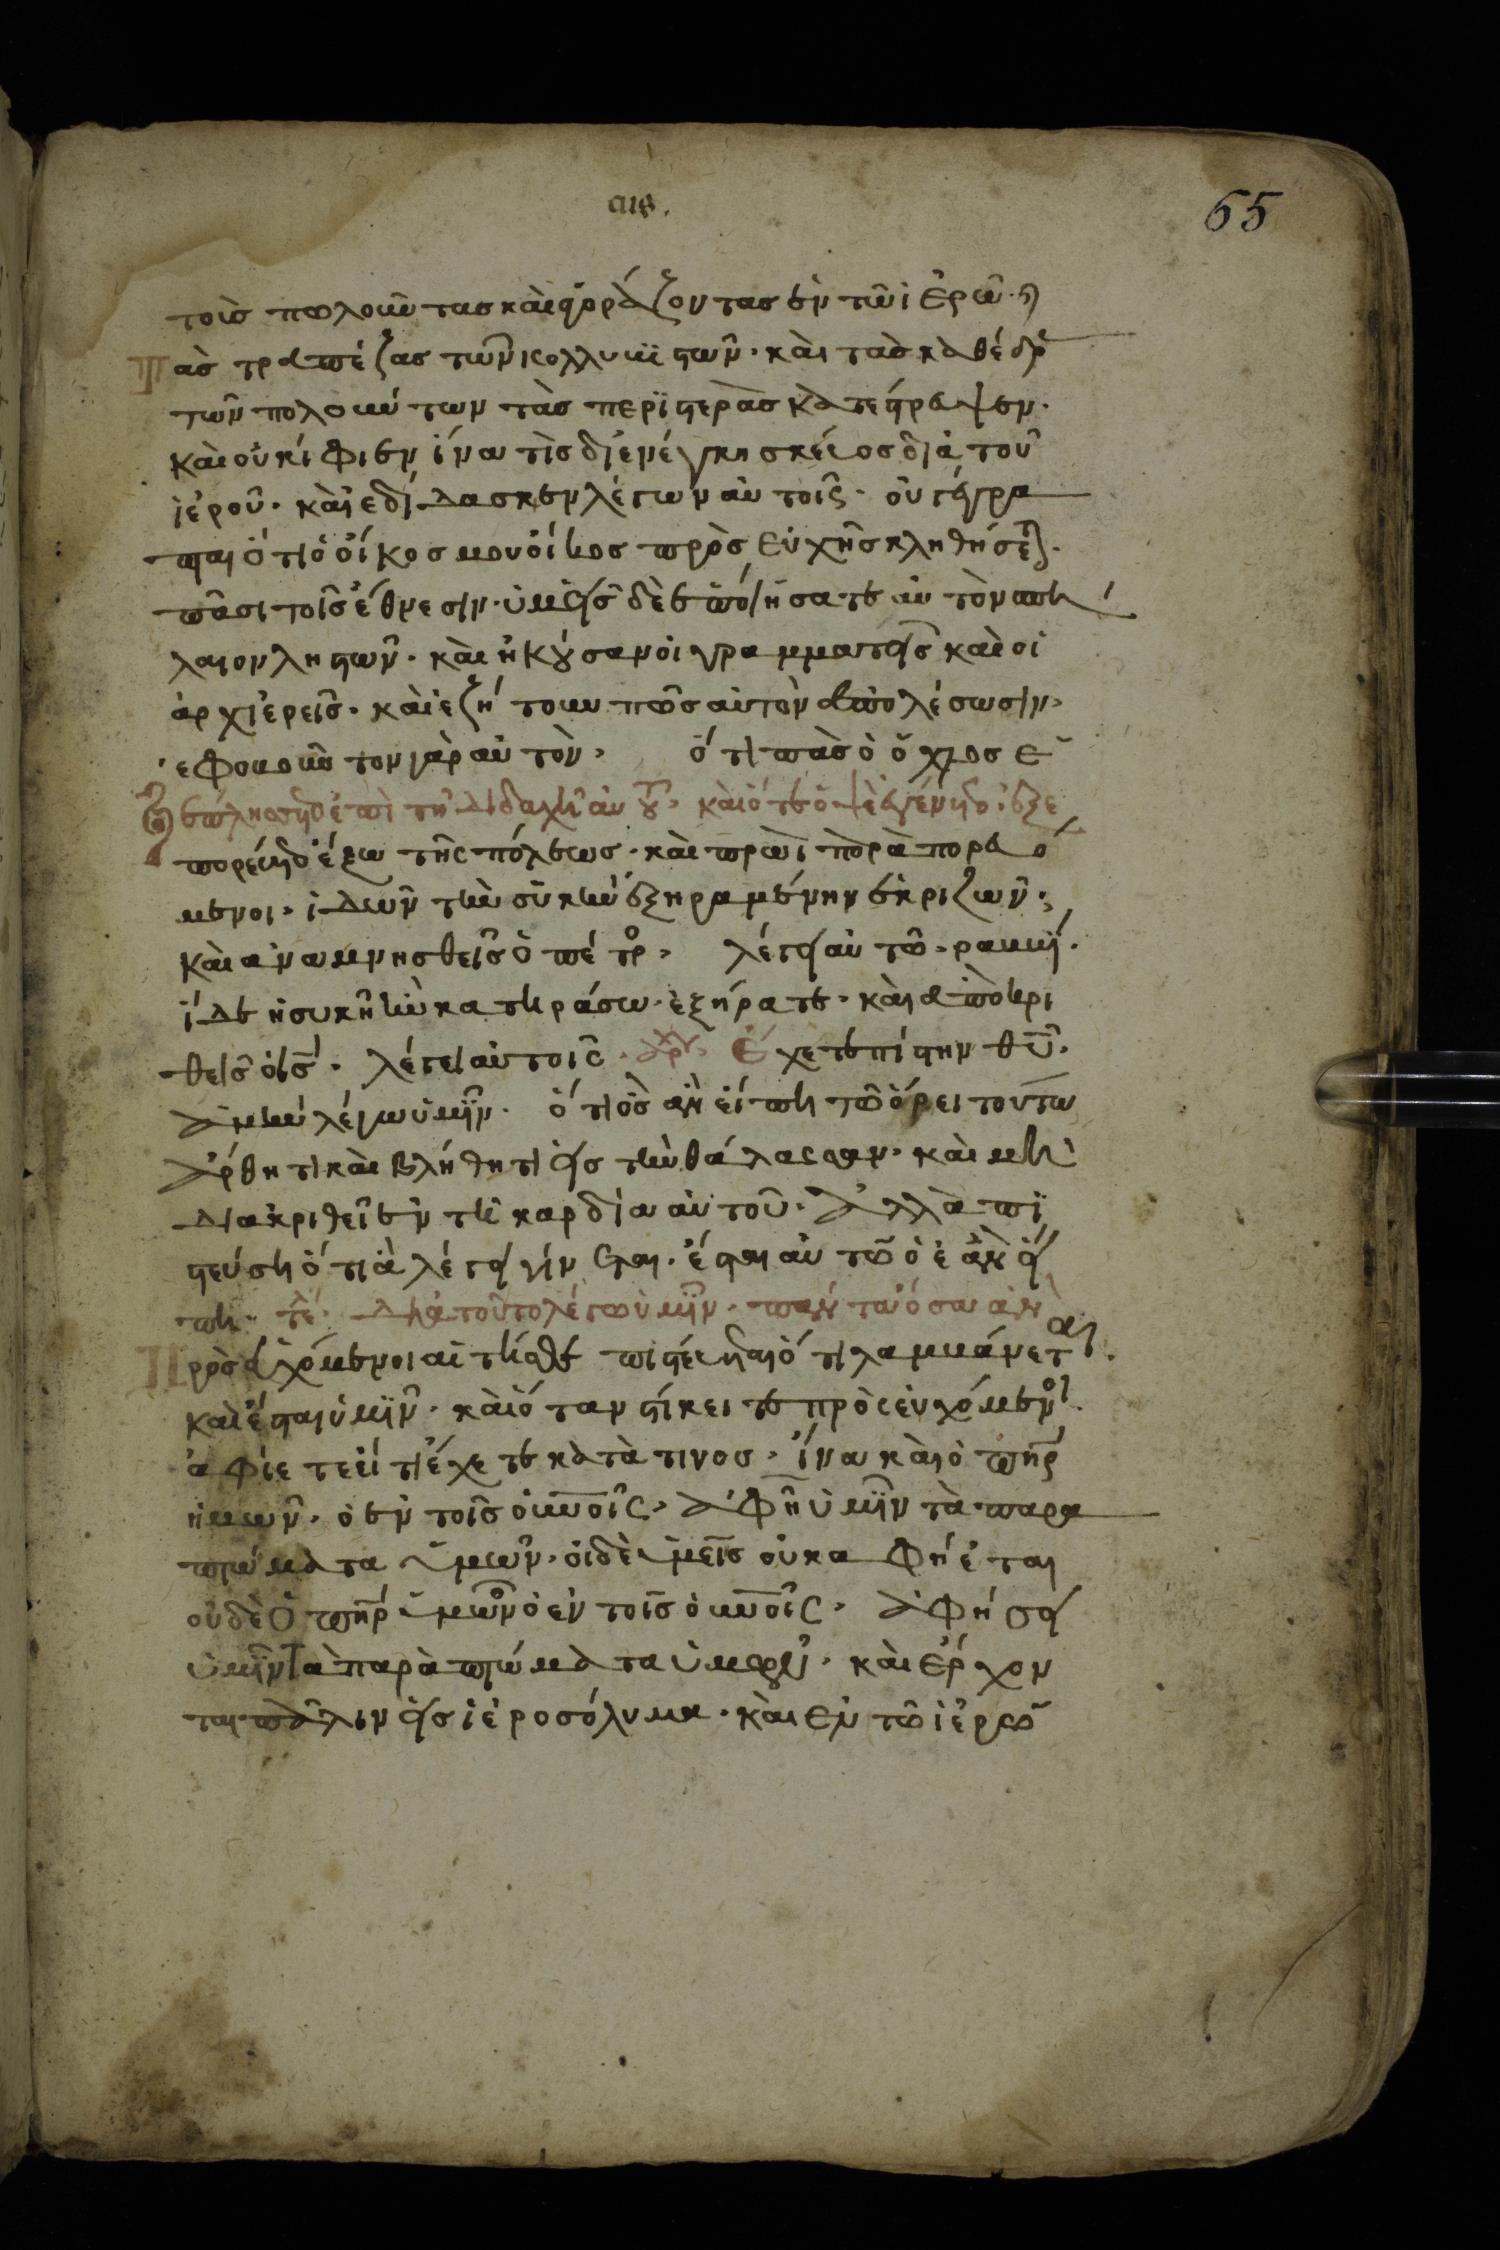 65
τοὺσ πολοῦντασ καὶ ἀγοράζοντασ ἐν τῶ ἱερῶ· καὶ
Τὰσ τραπέζασ τῶν κολλυβιστῶν· καὶ τὰσ καθέδρ
τῶν πολούντων τὰσ περϊστερὰσ κατέστρεψεν·
καὶ οὐκ ἤφιεν ἵνα τὶσ διενέγκη σκεῦοσ διὰ τοῦ
ἱεροῦ· καὶ ἐδίδασκεν λέγων αὐτοῖς· οὐ γέγρα
πται ὅτι ὁ οἶκοσ μου οἶκοσ πρὸσ εὐχῆσ κληθήσεται·
πᾶσι τοῖσ ἔθνεσιν· ὑμεῖσ δὲ ἐποιήσατε αὐτὸν σπη
λαιον ληστῶν· καὶ ἤκουσαν οἱ γραμματεῖσ καὶ οἱ
ἀρχιερεῖσ· καὶ ἐζήτουν πῶσ αὐτὸν ἀπολέσωσιν·
ἐφοβοῦντο γὰρ αὐτὸν· ὅτι πὰσ ὁ ὄχλοσ ἐ
ξεπλησσετο ἐπὶ τῆ διδαχῆ αὐτοῦ· καὶ ὅτε ὀψὲ ἐγένετο· ἐξε
πορεύετο ἔξω τῆς πόλεωσ· καὶ πρωῒ παραπορευό
μενοι· ἰδων τὴν συκὴν ἐξηραμένην ἐκ ριζῶν·
καὶ αναμνησθεὶσ ὁ πέτρ· λέγει αὐτῶ· ραββϊ·
ἴδε ἡ συκῆ ἣν κατηράσω· ἐξήρατε· καὶ ἀποκρι
θεὶσ ὁ ισ· λέγει αὐτοῖς· Ἔχετε πίστην θυ·
ἀμὴν λέγω ὑμῖν· ὅτι ὃσ ἂν εἴπη τῶ ὄρει τούτω
ἄρθητι καὶ βλήθητι εἰσ τὴν θάλασσαν· καὶ μὴ
διακριθεῖ ἐν τῆ καρδία αὐτοῦ· ἀλλὰ πι
στεύση ὅτι ἃ λέγει γίνεται· ἔσται αὐτῶ ὃ ἐὰν εἴ
πη· τέ· Διὰ τοῦτο λέγω ὑμῖν· πάντα ὅσα ἂν
Προσευχόμενοι αἰτῆσθε πιστεύεται ὅτι λαμβάνεται·
καὶ ἔσται ὑμῖν· καὶ ὅταν στίκειτε προσευχόμενοι·
ἀφίετε εἴ τι ἔχετε κατὰ τινοσ· ἵνα καὶ ὁ πηρ
ἡμῶν· ὁ ἐν τοῖσ οὐνοῖς· ἀφῆ ὑμῖν τὰ παρα
πτώματα ὑμῶν· εἰ δὲ ὑμεῖσ οὐκ αφήεται
οὐδὲ ὁ πηρ ὑμῶν ὁ ἐν τοῖσ οὐνοῖς· ἀφήσει
ὑμῖν τὰ παραπτώματα ὑμῶν· καὶ ἔρχον
ται πάλιν εἰσ ἱεροσόλυμα· καὶ ἐν τῶ ἱερῶ